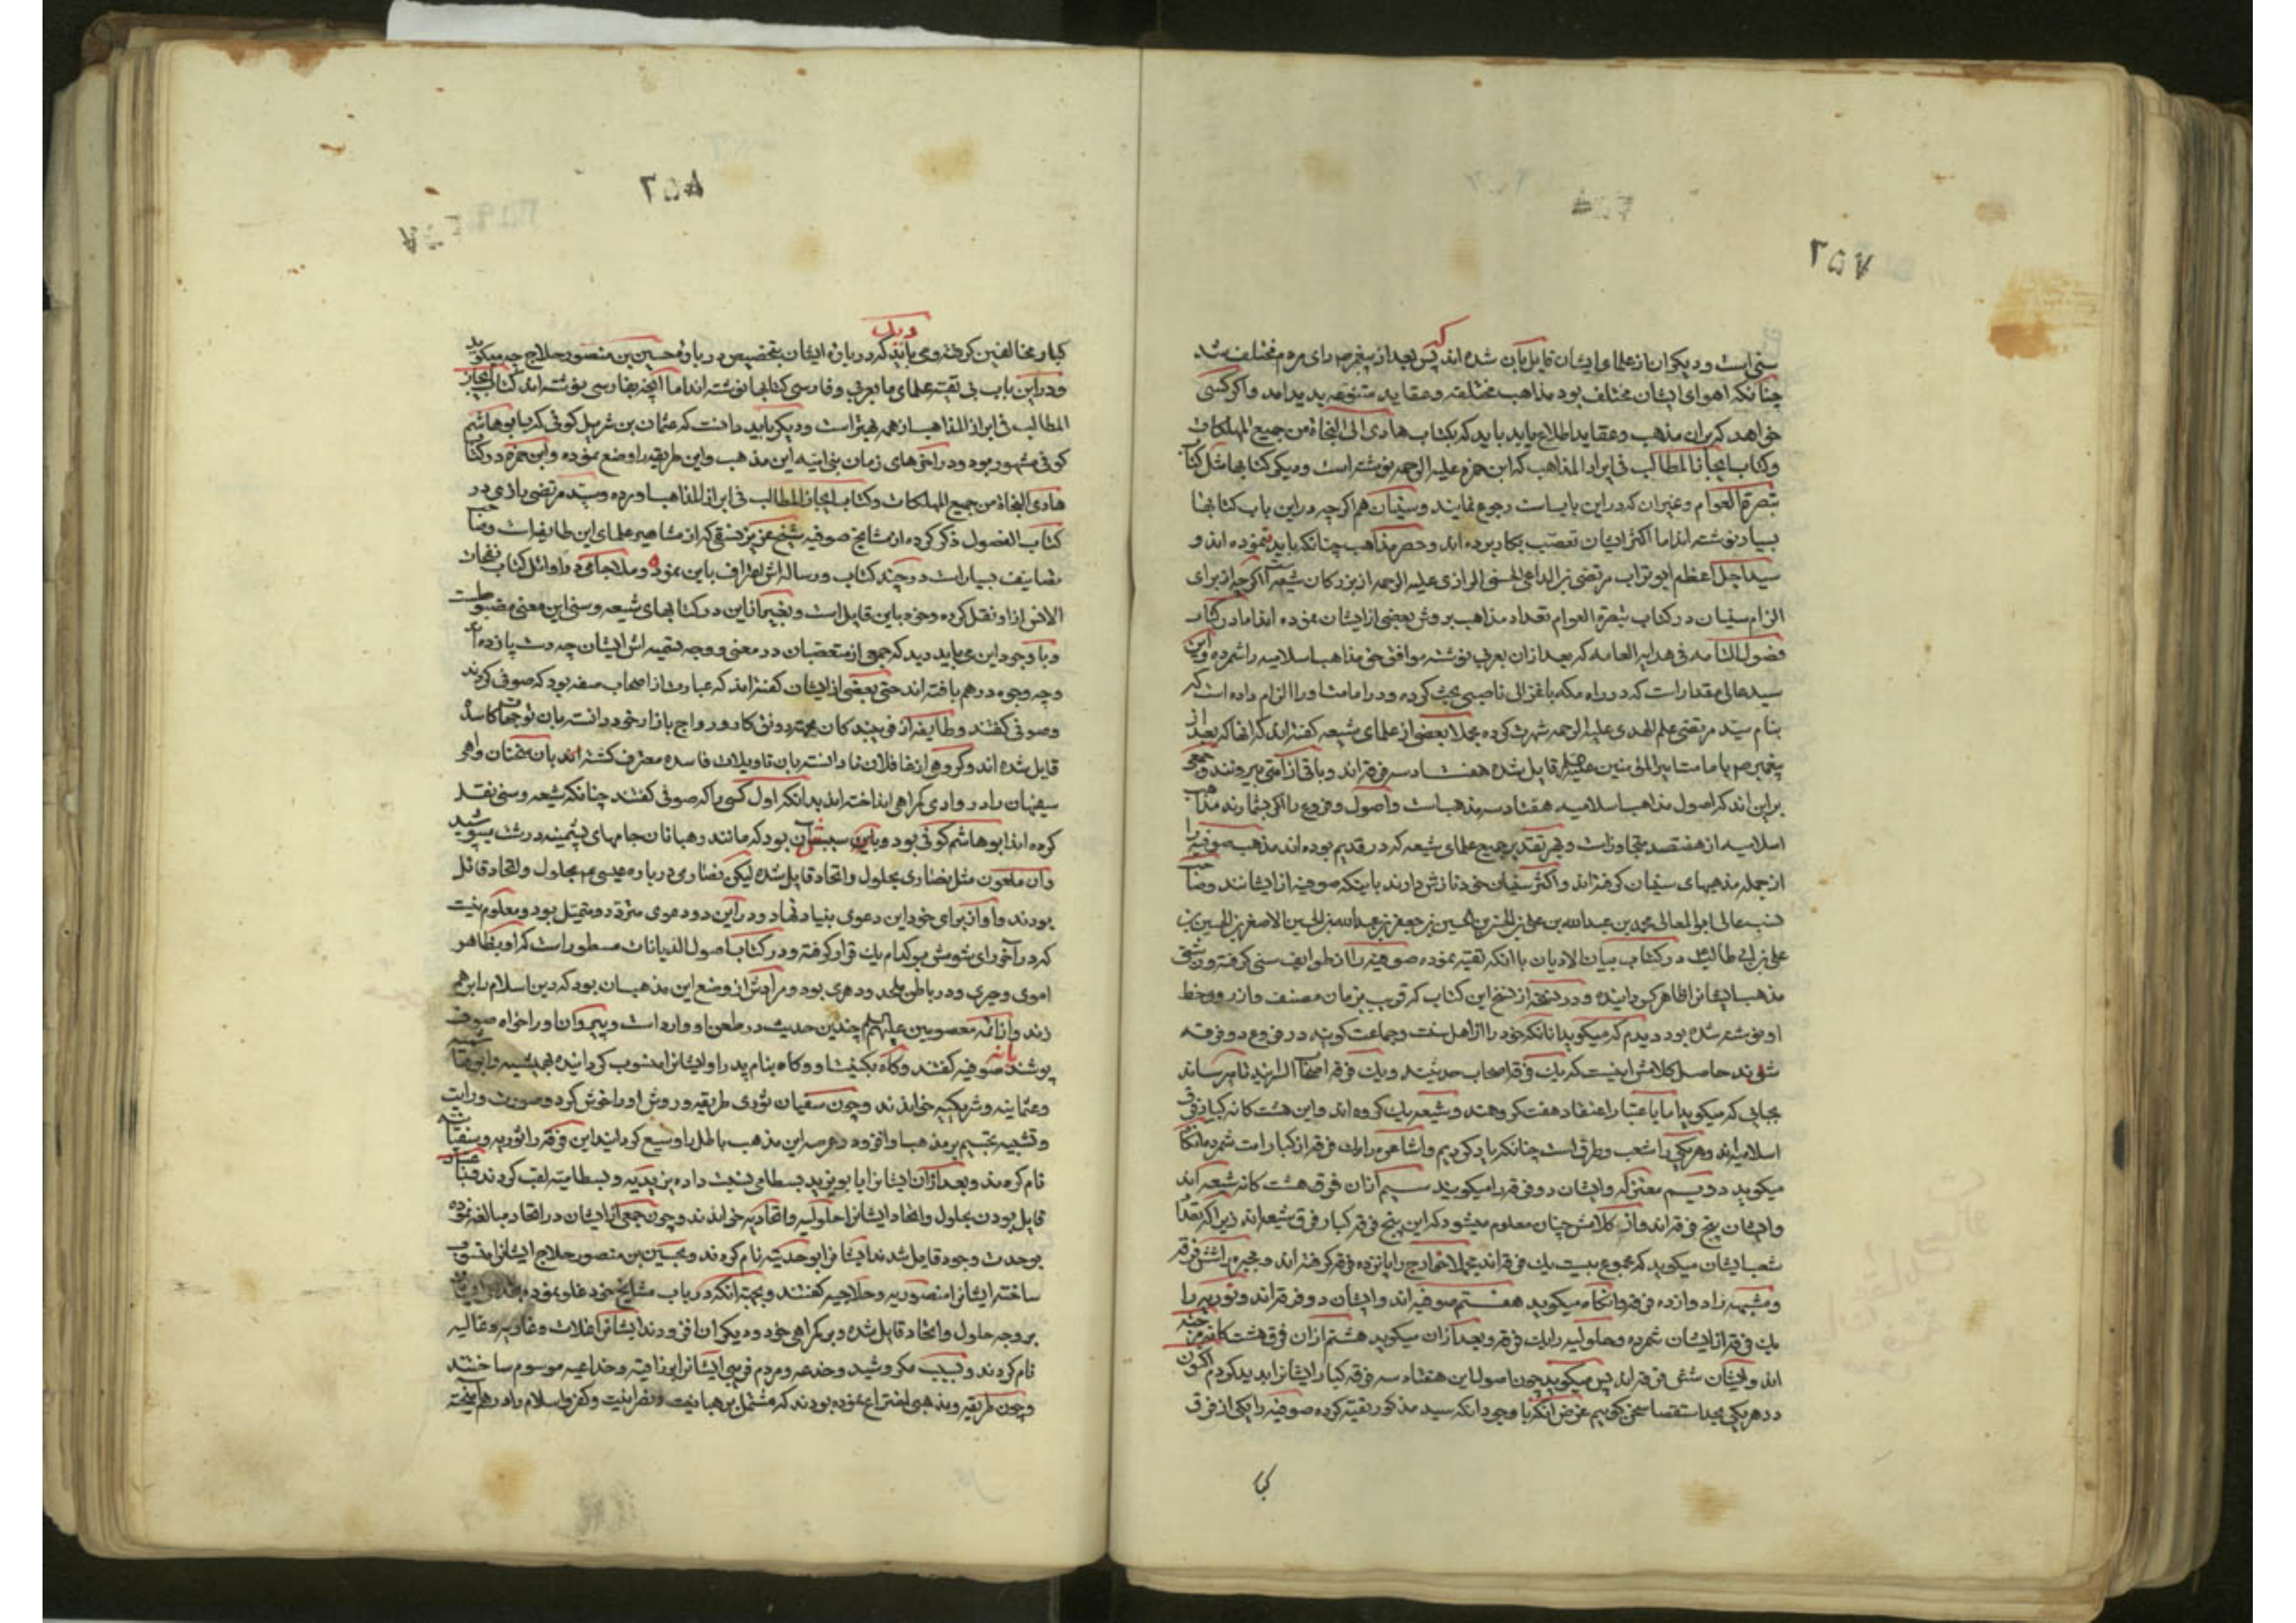 ۲۵۷
سنی است و دیگران از علمای ایشان قایل بآن شده اند که پس بعد از پیغمبر ص رای مردم مختلف شد
چنانکه اهوای ایشان مختلف بود مذاهب مختلفه و عقاید متنوعه پدید امد و اگر کسی
خواهد که بران مذهب و عقاید اطلاع یابد باید که بکتاب هادی الی النجاة من جمیع المهلکات
و کتاب ایجاز المطالب فی ابراز المذاهب که ابن حمزه علیه الرحمه نوشته است و دیگر کتابها مثل کتاب
تبصرة العوام و غیران که در این باب است رجوع نمایند و سنیان هم اگرچه در این باب کتابها
بسیار نوشته اند اما اکثر ایشان تعصب بکار برده اند و حصر مذاهب چنانکه باید ننموده اند و
سید اجل اعظم ابو تراب مرتضی بن الداعی الحسنی الرازی علیه الرحمه از بزرگان شیعه است اگرچه از برای
الزام سنیان در کتاب تبصرة العوام تعداد مذاهب بروش بعضی از ایشان نموده اند اما در کتاب
فصول التامه فی هدایه العامه که بعد ازان بعربی نوشته موافق حق مذاهب اسلامیه را شمرده و این
سید عالی مقدار است که در راه مکه با غزالی ناصبی بحث کرده و در امامت او را الزام داده است که
بنام سید مرتضی علم الهدی علیه الرحمه شهرت کرده مجملا بعضی از علمای شیعه گفته اند که انها که بعد از
پیغمبر ص بامامت امیر المؤمنین علیه السلم قایل شده هفتاد سه فرقه اند و باقی از امتی بیرونند و جمعی
براین اند که اصول مذاهب اسلامیه هفتاد سه مذهب است و اصول و فروع را اگر بشمارند مذاهب
اسلامیه از هفتصد متجاوز است و بهر تقدیر جمیع علمای شیعه که در قدیم بوده اند مذهب صوفیه را
از جمله مذهبهای سنیان گرفته اند و اکثر سنیان خود نازش دارند باینکه صوفیه از ایشانند و صاحب
نسب عالی ابو المعالی محمد بن عبدالله بن علی بن الحسن بن الحسین بن جعفر بن عبدالله بن الحسین الاصغر بن الحسین بن
علی بن ابی طالب در کتاب بیان الادیان با انکه تقیه نموده صوفیه را از طوایف سنی گرفته و زشتی
مذهب ایشانرا ظاهر گردانیده و در نسخه از نسخ این کتاب که قریب بزمان مصنف و از روی خط
او نوشته شده بود دیدم که میگوید انانکه خود را از اهل سنت و جماعت گویند در فروع دو فرقه
شده اند حاصل کلامش اینست که یک فرقه اصحاب حدیثند و یک فرقه اصحاب الرایند تا میرساند
بجایی که میگوید اما باعتبار اعتقاد هفت گروهند و شیعه یک گروه اند و این هشت گانه کبار فرق
اسلامیه اند و هر یکی را شعب و طرق است چنانکه یاد کردیم و اشاعره را یک فرقه از کبار امت شمرده انگاه
میگوید دویم معتزله و ایشان دو فرقه را میگویند سیم آنان فرق هشت گانه شیعه اند
و ایشان پنج فرقه اند و از کلامش چنان معلوم میشود که این پنج فرقه کبار فرق شیعه اند زیرا که تعداد
شعب ایشان میگوید که مجموع بیست یک فرقه اند مجملا خوارج را پانزده فرقه گرفته اند و مجبره را شش فرقه
و مشبهه را دوازده فرقه و انگاه میگوید هفتم صوفیه اند و ایشان دو فرقه اند و نوریه را
یک فرقه از ایشان شمرده و حلولیه را یک فرقه و بعد ازان میگوید هشتم ازان فرق هشت گانه مرجئه
اند و ایشان شش فرقه اند پس میگوید چون اصول این هفتاد سه فرقه کبار ایشانرا پدید کردم اکنون
در هر یکی بجد استقصا سخن گوییم غرض انکه با وجود انکه سید مذکور تقیه کرده صوفیه را یکی از فرق
کبا
۲۵۸
کبار مخالفین گرفته و می باید دید که در باره ایشان بتخصیص در باره حسین بن منصور حلاج چه میگوید
و در این باب بی تقیه علمای ما بعربی و فارسی کتابها نوشته اند اما انچه بفارسی نوشته اند کتاب ایجاز
المطالب فی ابراز المذاهب از همه بهتر است و دیگر باید دانست که عثمان بن شریک کوفی که بابو هاشم
کوفی مشهور بود در اخرهای زمان بنی امیه این مذهب و این طریقه را وضع نموده و ابن حمزه در کتاب
هادی النجاة من جمیع المهلکات و کتاب ایجاز المطالب فی ابراز المذاهب اورده و سید مرتضی رازی در
کتاب الفصول ذکر کرده از مشایخ صوفیه شیخ عزیز نسفی که از مشاهیر علمای این طایفه است و صاحب
تصانیف بسیار است در چند کتاب و رساله اش اعتراف باین نموده و ملا جامی در اوائل کتاب نفحات
الانس از او نقل کرده و خود باین قایل است و بغیر از این در کتابهای شیعه و سنی این معنی مضبوط است
و با وجود این می باید دید که جمعی از متعصبان در معنی و وجه تسمیه اش ایشان چه دست پا زده اند
و چه وجوه درهم بافته اند حتی بعضی از ایشان گفته اند که عبارت از اصحاب صفه بود که صوفی کردند
و صوفی گفتند و طایفه از فریبندگان بجهة رونق کار و رواج بازار خود دانسته بان توجیهات کاسده
قایل شده اند و گروهی از غافلان نادانسته بان تاویلات فاسده معترف گشته اند بان سخنان واهی
سفیهان را در وادی گمراهی انداخته اند بدانکه اول کسی را که صوفی گفتند چنانکه شیعه و سنی نقل
کرده اند ابو هاشم کوفی بود و باین سبب بود که مانند رهبانان جامهای پشمینه درشت میپوشید
و ان ملعون مثل نصاری بحلول و اتحاد قایل شده لیکن نصاری در باره عیسی ع بحلول و اتحاد قائل
بودند و او از برای خود این دعوی بنیاد نهاد و در این دو دعوی متردد و متمثل بود و معلوم نیست
که در آخر رای شومش بر کدام یک قرار گرفته و در کتاب اصول الدیانات مسطور است که او بظاهر
اموی و جبری و در باطن ملحد و دهری بود و مرادش از وضع این مذهب ان بود که دین اسلام را برهم
زند و از ائمه معصومین علیهم السلم چندین حدیث در طعن او وارد است و پیروان او را خواه صوف
پوشند یا نه صوفیه گفتند و گاه بکنیت او و گاه بنام پدر او ایشانرا منسوب گردانیده
و عثمانیه و شریکیه خواندند و چون سفیان ثوری طریقه و روش او را خوش کرد و صورت و رایت
و تشبیه تجسیم بر مذهب او افزود و عرصه این مذهب باطل را وسیع گردانید این فرقه را ثوریه و سفیانیه
نام کردند و بعد ازان ایشانرا بابو یزید بسطامی نسبت داده یزیدیه و بسطامیه لقب کردند
قایل بودن بحلول و اتحاد ایشانرا حلولیه و اتحادیه خواندند و چون جمعی از ایشان در اتحاد مبالغه نموده
بوحدت وجود قایل شدند ایشانرا بوحدتیه نام کردند و بحسین بن منصور حلاج ایشانرا منسوب
ساخته ایشانرا منصوریه و حلاجیه گفتند و بجهة انکه در باب مشایخ خود غلو نموده
بروجه حلول و اتحاد قایل شده و بر گمراهی خود و دیگران افزودند ایشانرا غلات و غاویه و غالیه
نام کردند و بسبب مکر و شید و خدعه و مردم فریبی ایشانرا بزراقیه و خداعیه موسوم ساختند
و چون طریقه و مذهبی اختراع نموده بودند که مشتمل بر رهبانیت و نصرانیت و کفر و اسلام را درهم آمیخته